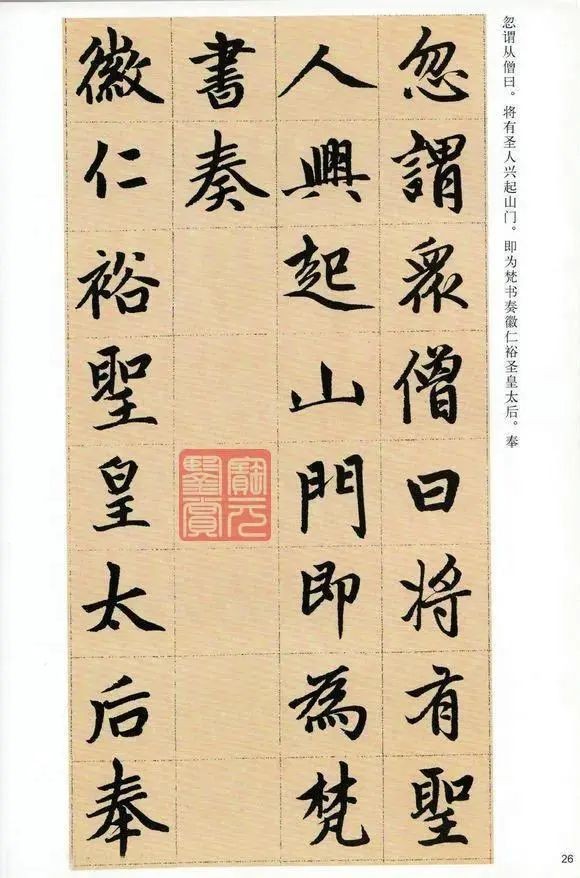 忽谓从僧曰。将有圣人兴起山门。即为梵书奏徽仁裕圣皇太后。奉
忽謂眾僧曰将有聖
人興起山門即為梵
書奏
徽仁裕聖皇太后奉
寶元
鑒賞
26